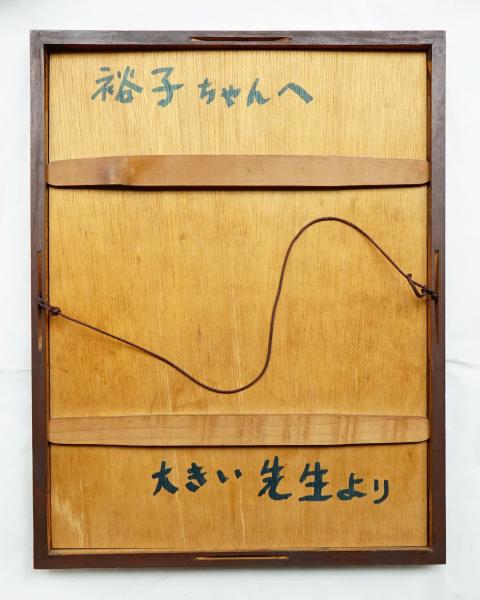 裕子ちゃんへ
大きい先生より